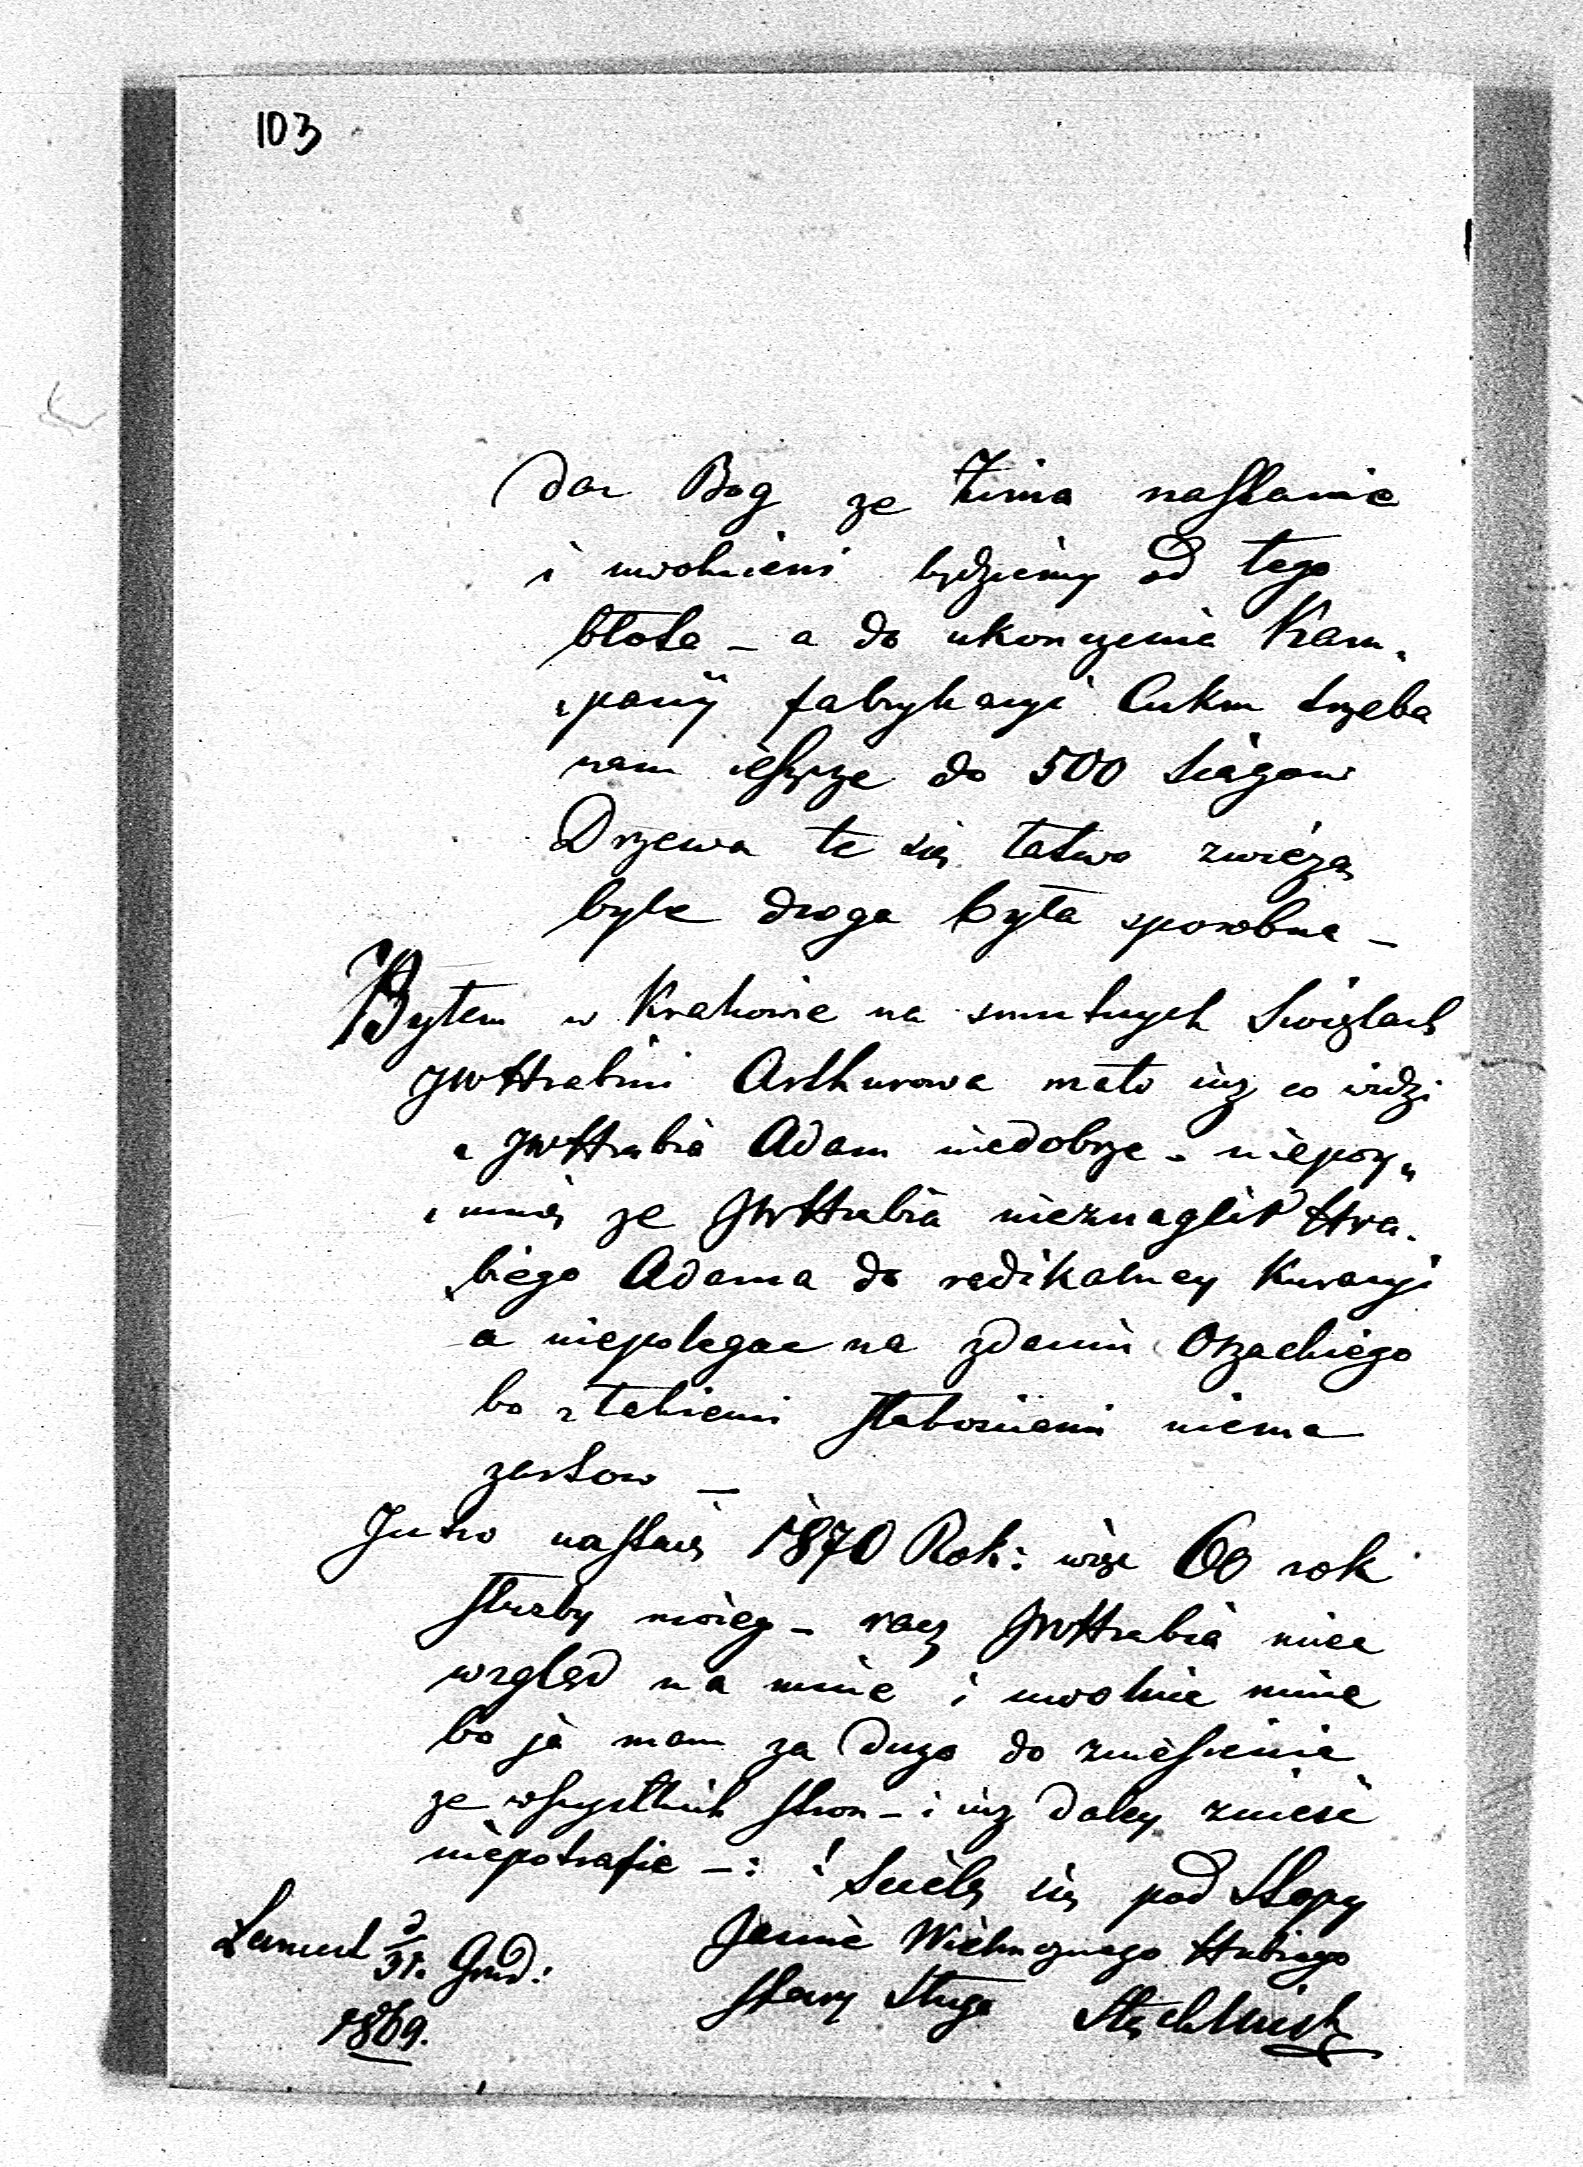 103
dac Bog ze Zima nastanie
i uwolnieni będziemy od tego
błota – a do ukonczenia Kam„
„panij fabrykacyi Cukru trzeba
nam ieszcze do 500 Siągow
Drzewa te się łatwo zwiezą
byle droga była sposobna –
Byłem w Krakowie na smutnych Swiętach
JWHrabini Arthurowa mało iuz co widzi
a JWHrabia Adam niedobrze – niepoy„
„muię ze JWHrabia nieznaglił Hra„
biego Adama do radikalney Kuracyi
a niepolegac na zdaniu Orzackiego
bo z takiemi słabosciami niema
zartow –
Jutro nastaie 1870 Rok: więc 60 rok
słuzby moiey – racz JWHrabia miec
wzgląd na mnie i uwolnic mnie
bo ja mam za duzo do zniesienia
ze wszystkich stron – i iuz daley zniesc
niepotrafie –: ! Scielę się pod Stopy
Jasnie Wielmoznego Hrabiego
Łancut d 31. Grud:
stary Sługa
1869.